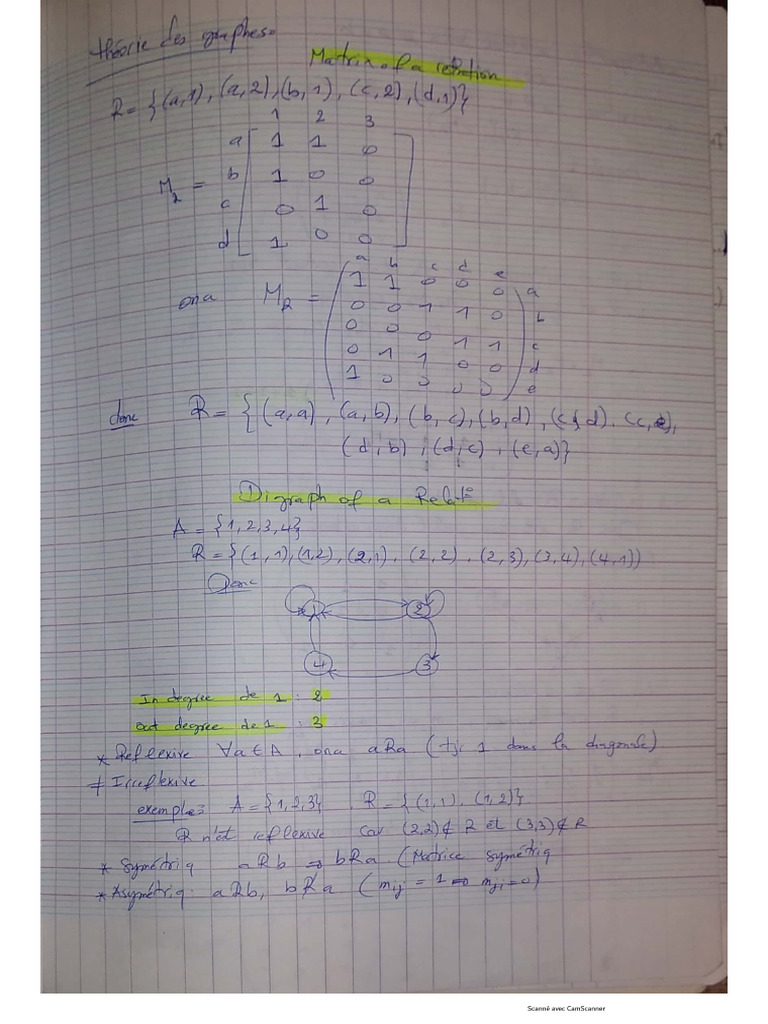 théorie des graphes.
Matrix of a relation
R = {(a,1), (a,2), (b,1), (c,2), (d,1)}
1 2 3
a 1 1 0
M₂ = b 1 0 0
c 0 1 0
d 1 0 0
a b c d e
1 1 0 0 0 a
ona M₂ = 0 0 1 1 0 b
0 0 0 1 1 c
0 1 1 0 0 d
1 0 0 0 0 e
donc R = {(a,a), (a,b), (b,c), (b,d), (c,d), (c,e),
(d,b), (d,c), (e,a)}
Digraph of a Relat°
A = {1,2,3,4}
R = {(1,1), (1,2), (2,1), (2,2), (2,3), (3,4), (4,1))
Donc
1 2
4 3
In degree de 1 : 2
out degree de 1 : 3
* Reflexive ∀a∈A, ona aRa (tjr 1 dans la diagonale)
≠ Irreflexive
exemple: A = {1,2,3}, R = {(1,1), (1,2)}
R n'est reflexive car (2,2)∉R et (3,3)∉R
* Symétriq aRb ⇒ bRa (Matrice symétriq
* Asymétriq: aRb, b​R̸a (mij = 1 ⇒ mji = 0)
Scanné avec CamScanner